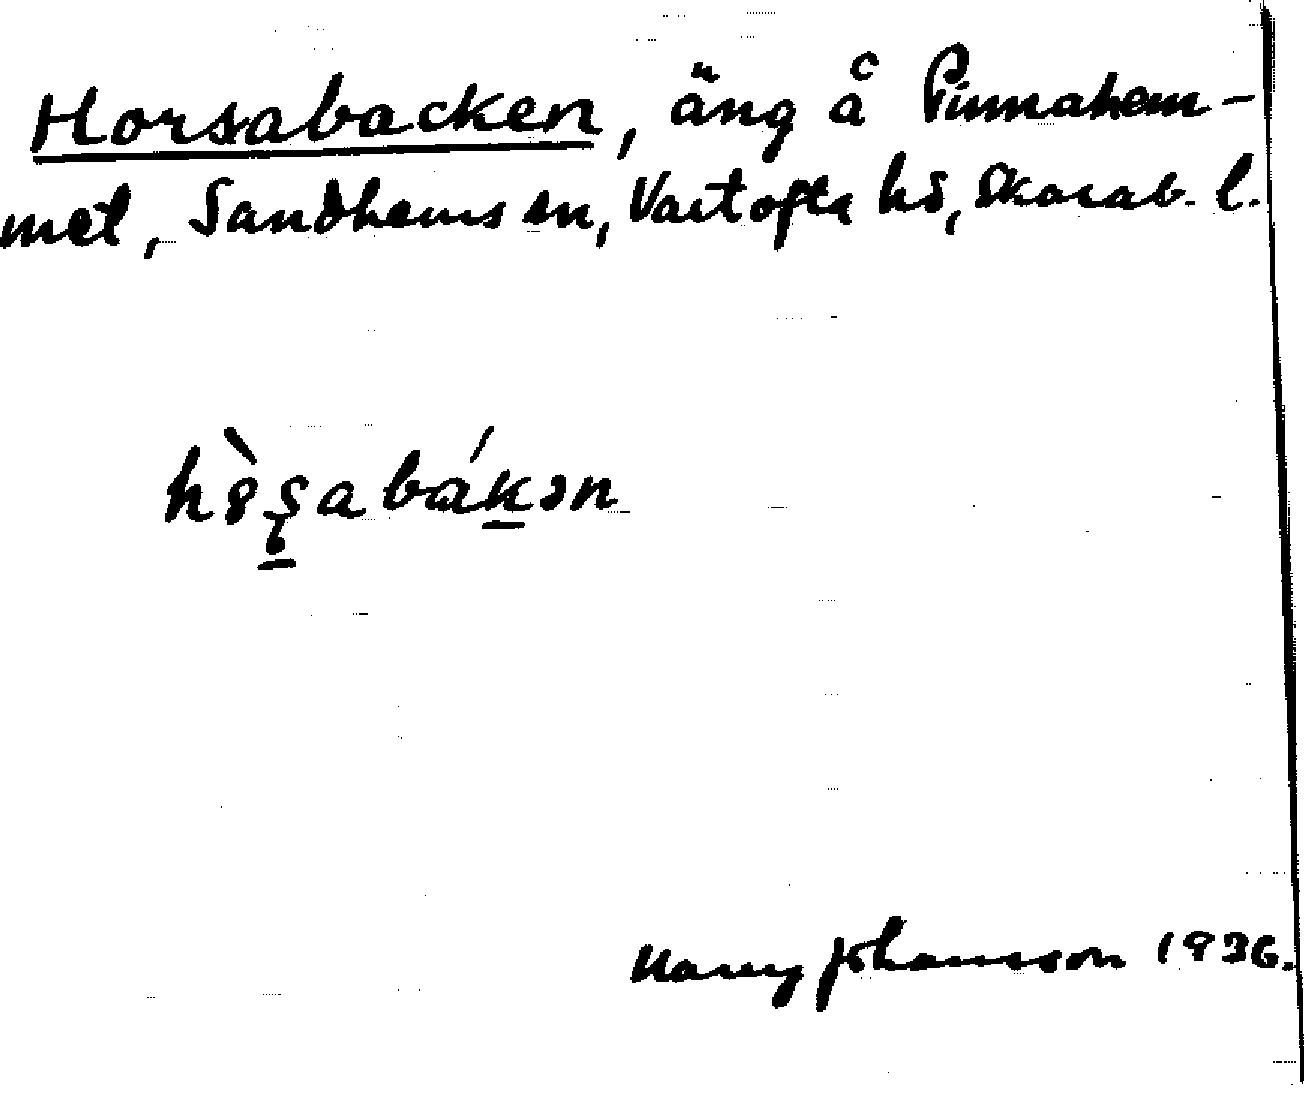 Horsabacken, äng å Pinnahem-
met, Sandhems sn, Vartofta hd, Skarab. l.
hò̤s̠abákən
Harry Johansson 1936.